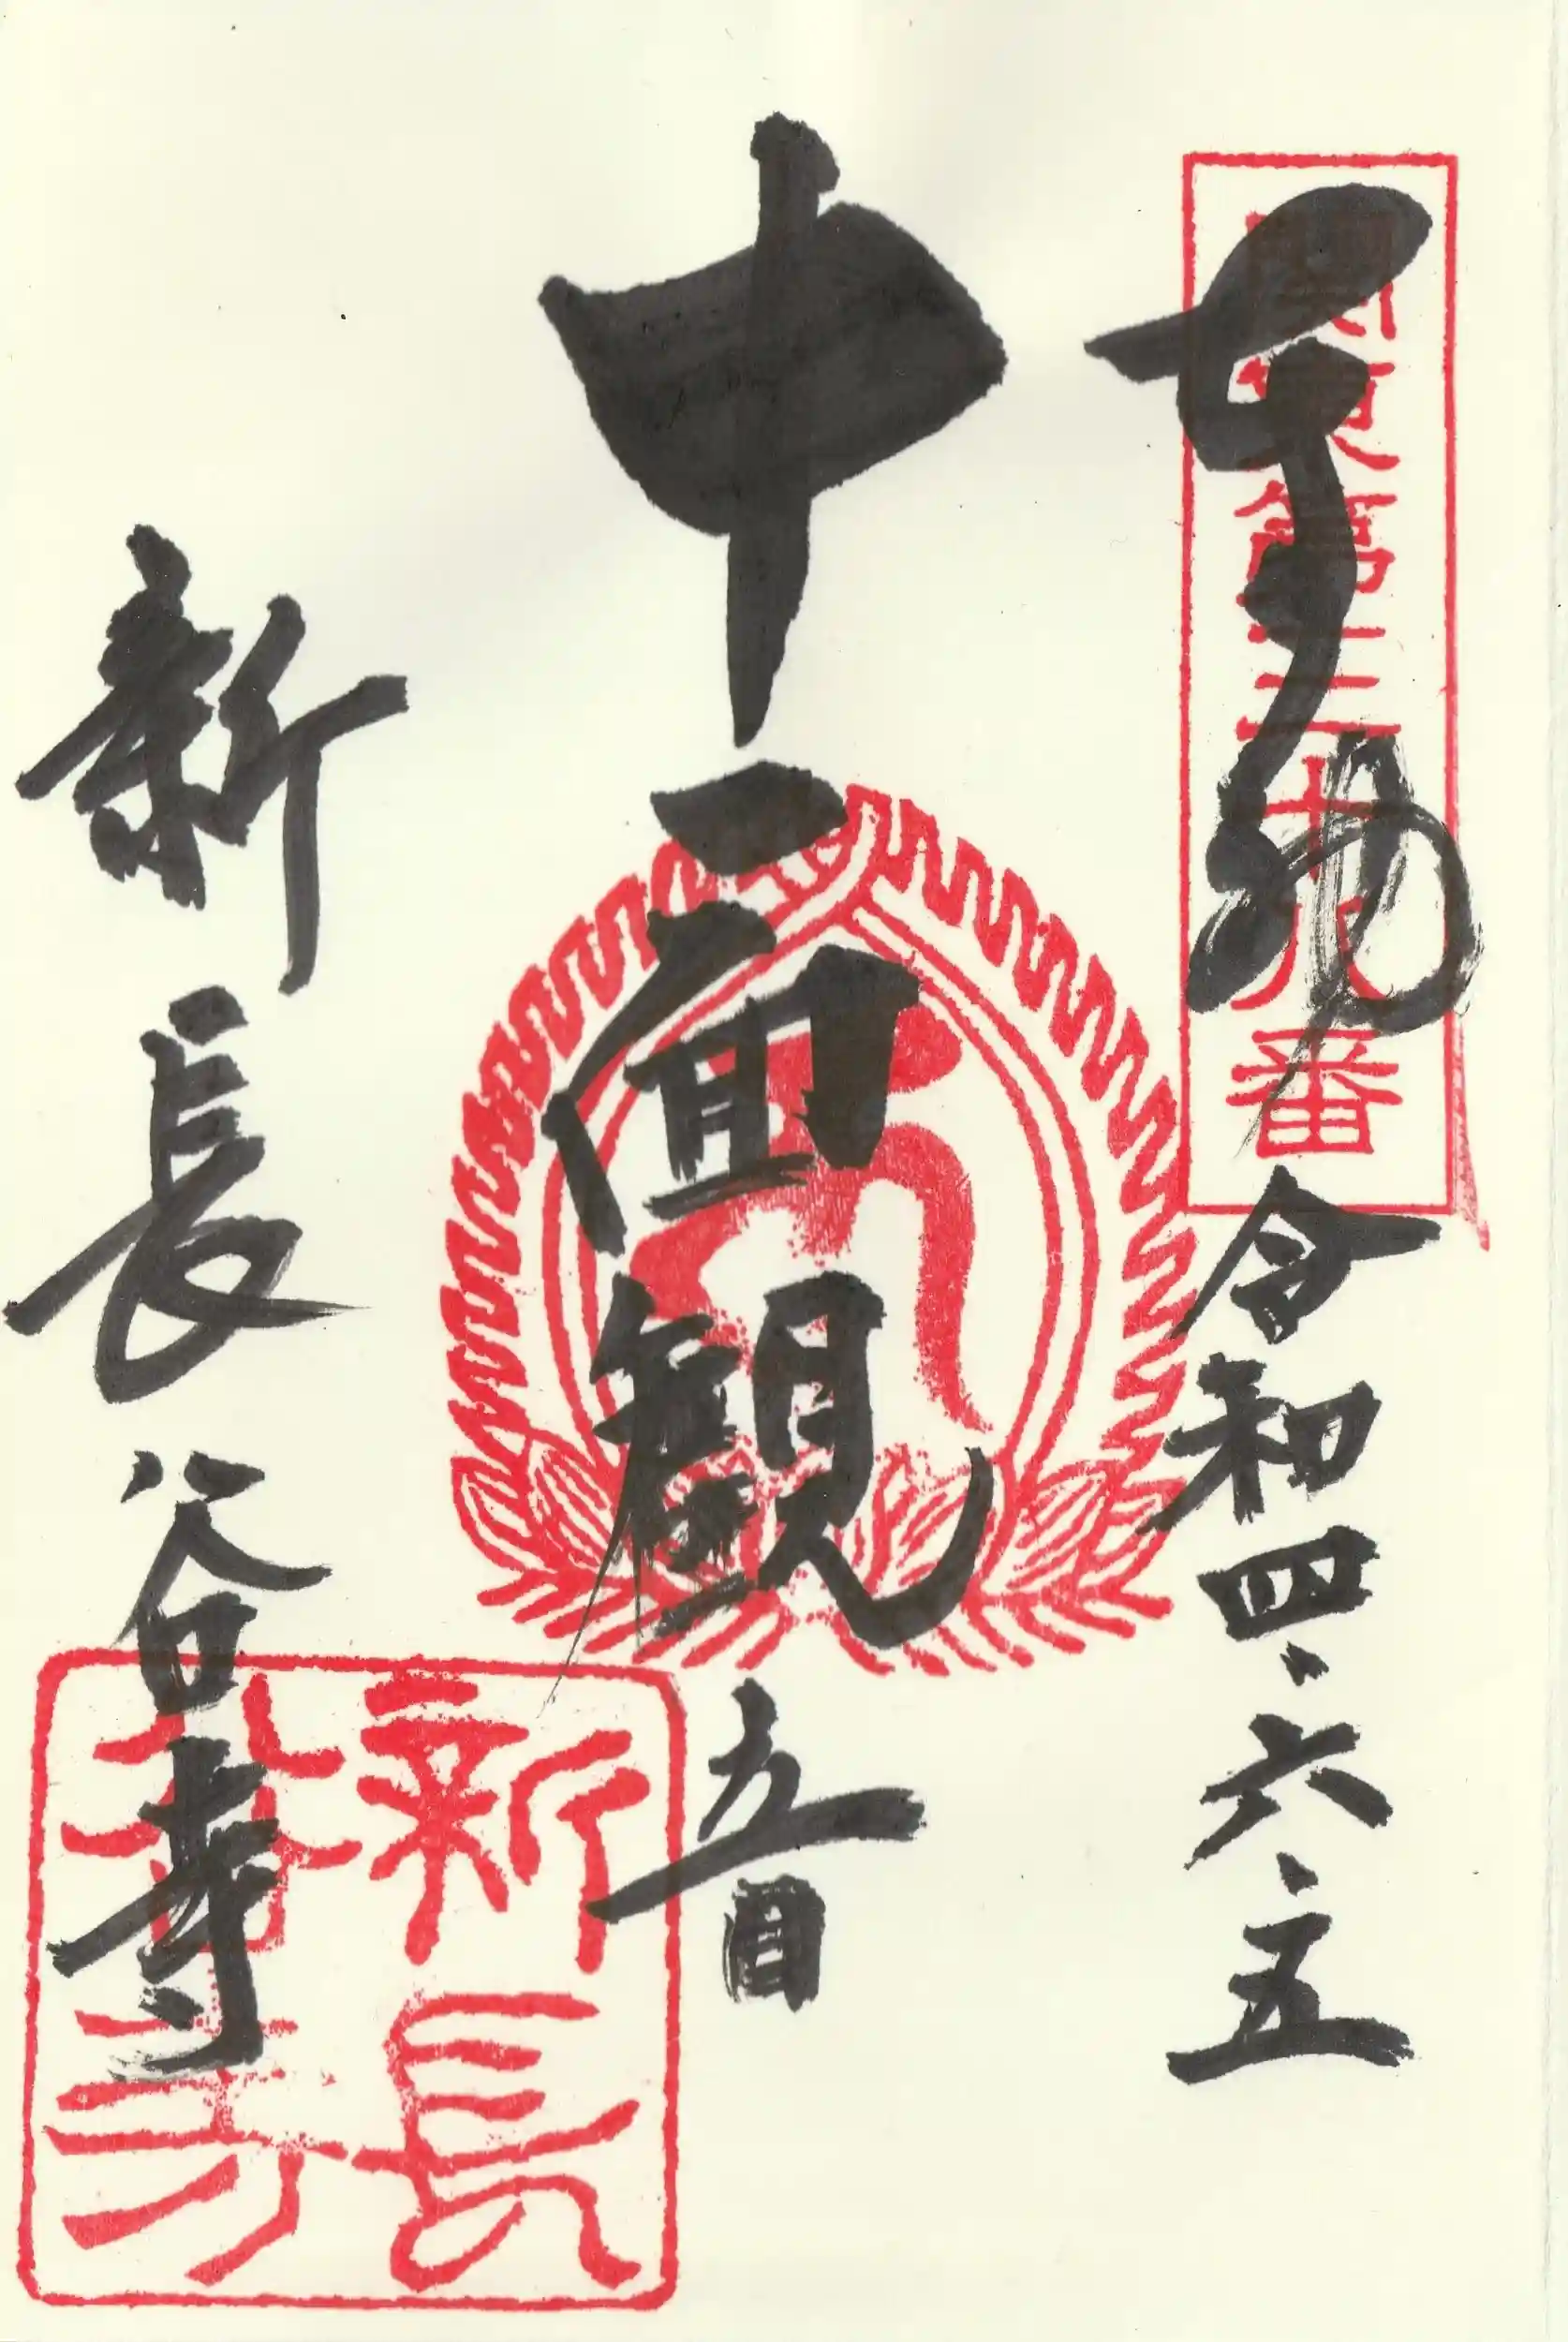 奉拝 令和四、六、五
關東第三十八番
十一面観音
新長谷寺
新長
谷寺